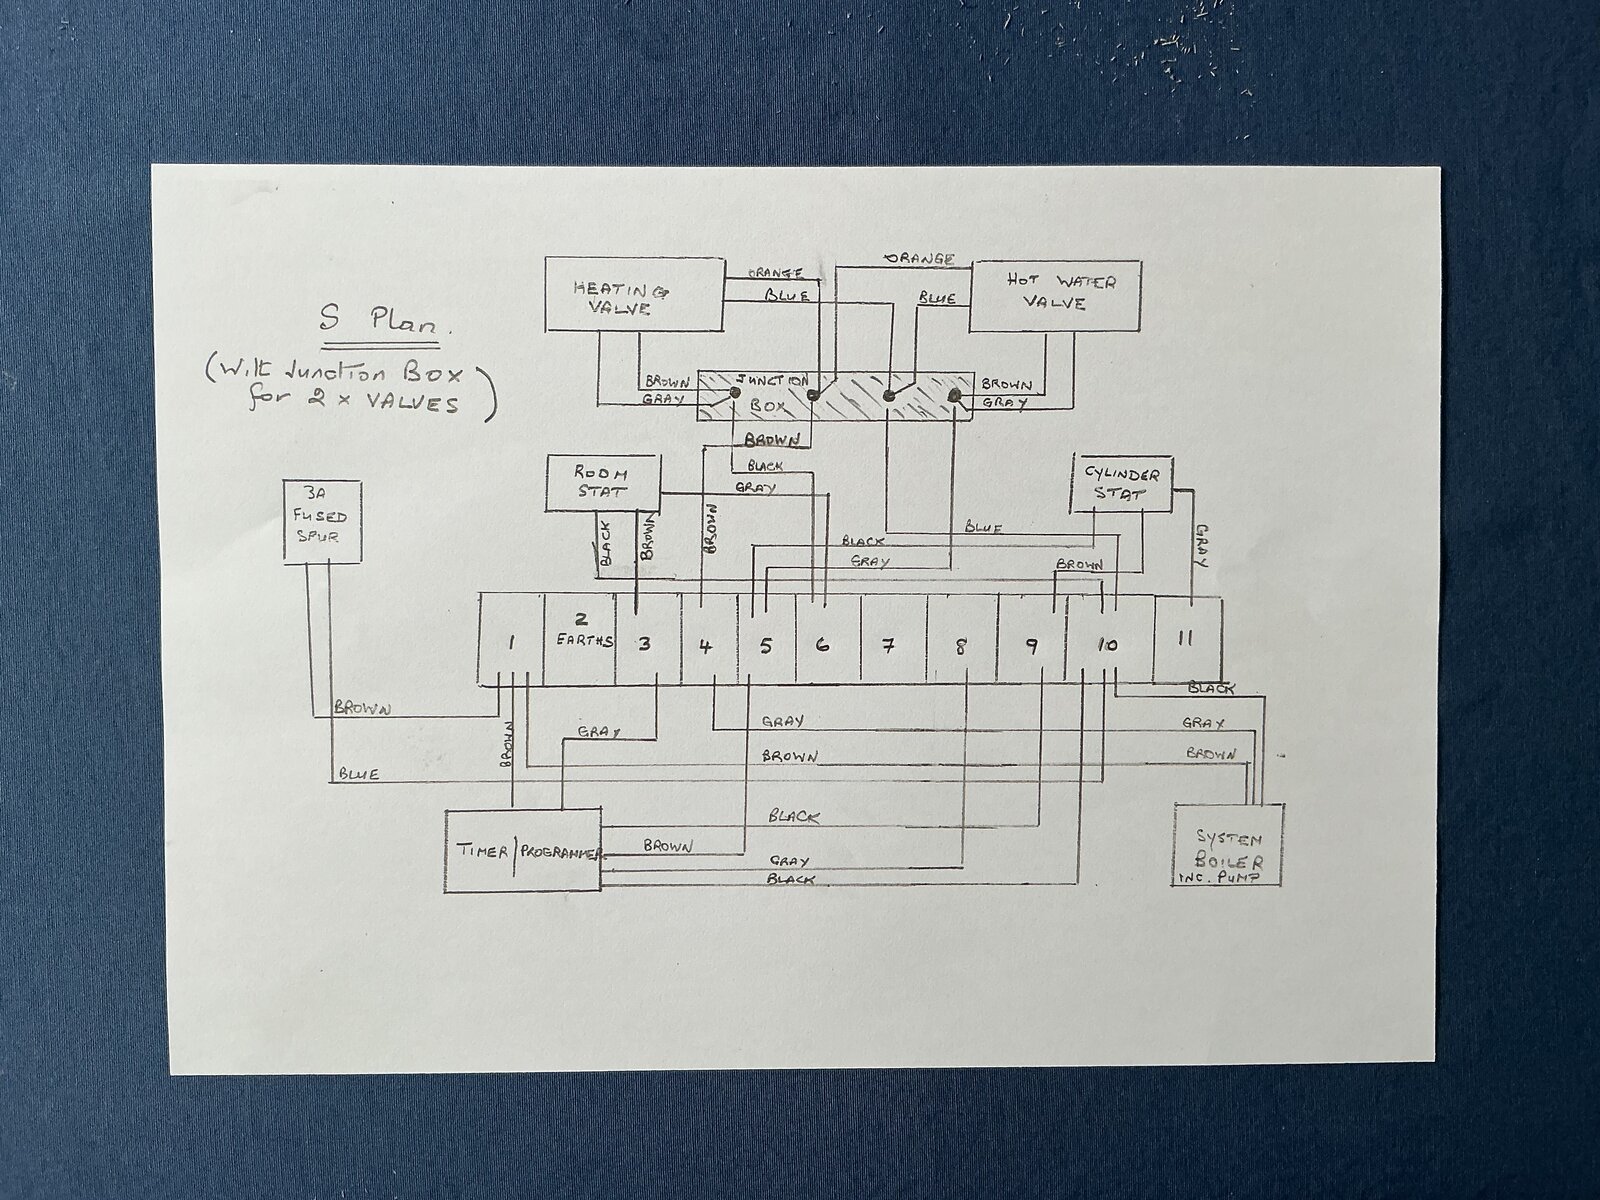 S Plan.
(With Junction Box
for 2 x VALVES)
HEATING
VALVE
ORANGE
BLUE
ORANGE
BLUE
HOT WATER
VALVE
BROWN
GRAY
JUNCTION
BOX
BROWN
GRAY
BROWN
BLACK
GRAY
ROOM
STAT
CYLINDER
STAT
3A
FUSED
SPUR
BLACK
BROWN
BROWN
BLUE
BLACK
GRAY
BROWN
GRAY
1
2
EARTHS
3
4
5
6
7
8
9
10
11
BLACK
BROWN
BROWN
GRAY
GRAY
GRAY
BROWN
BROWN
BLUE
BLACK
BROWN
GRAY
BLACK
TIMER/PROGRAMMER
SYSTEM
BOILER
INC. PUMP